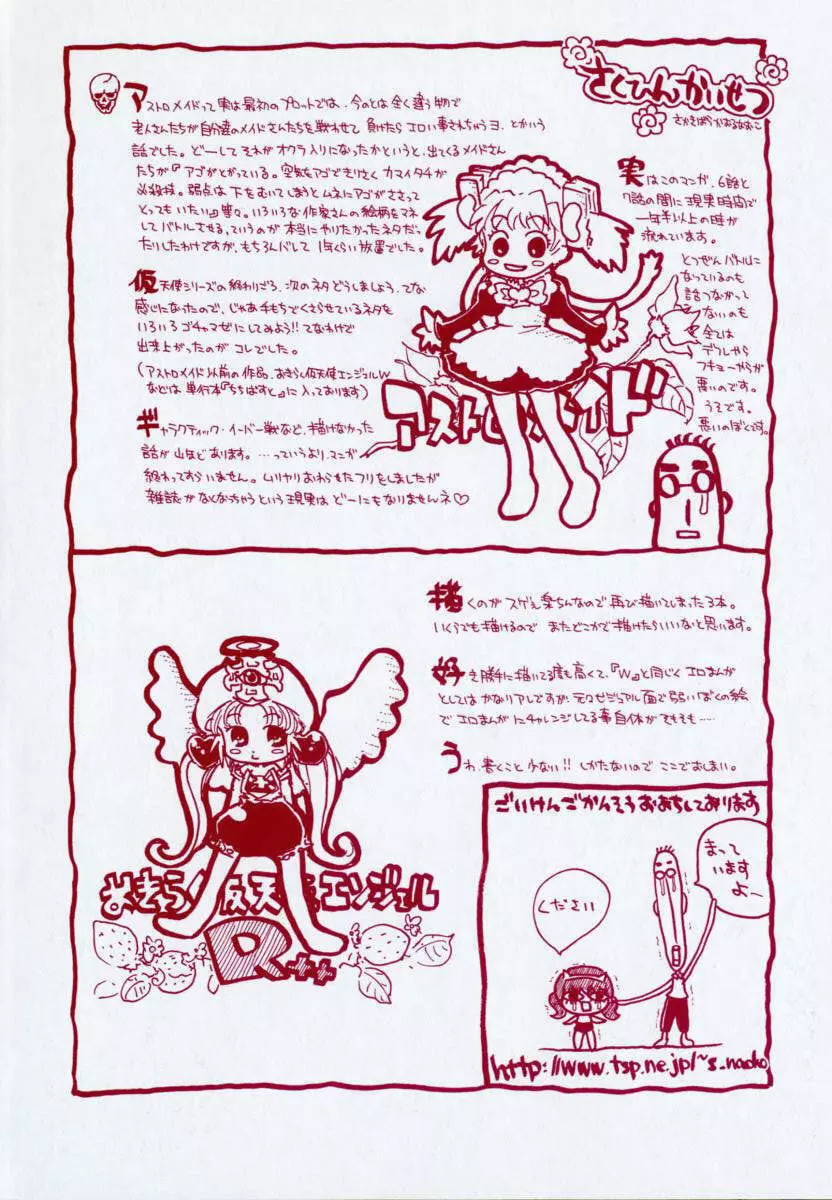 さくひんかいせつ
さかきばらかおるなおこ
アストロメイドって実は最初のプロットでは、今のとは全く違う物で
老人さんたちが自分達のメイドさんたちを戦わせて 負けたらエロい事されちゃうヨ、とかいう
話でした。どーしてそれがオクラ入りになったかというと、出てくるメイドさん
たちが『アゴがとがっている。空気をアゴできりさく カマイタチが
必殺技。弱点は下をむいてしまうとムネにアゴがささって
とってもいたい』等々。いろいろな作家さんの絵柄をマネ
してバトルさせる、ていうのが本当にやりたかったネタだっ
たりしたわけですが、もちろんバレして 1年くらい放置でした。
仮天使シリーズの終わりごろ、次のネタどうしましょう、てな
感じになったので、じゃあ手もちでくさらせているネタを
いろいろゴチャマゼにしてみよう!! てなわけで
出来上がったのが コレでした。
(アストロメイド以前の作品、おきらく仮天使エンジェルW
などは 単行本『ちちばすと』に入っております)
ギャラクティック・イーバー戦など、描けなかった
話が山ほどあります。…っていうより、マンガ
終わってすらいません。ムリヤリおわらせたフリをしましたが
雑誌がなくなっちゃうという現実は どーにもなりませんネ♡
実はこのマンガ、6話と
7話の間に現実時間で
一年半以上の時が
流れています。
とつぜんバトルに
なっているのも
話つながって
ないのも
全ては
デフレやら
フキョーからが
悪いのです。
うそです。
悪いのぼくです。
アストロメイド
描くのが スゲェ楽ちんなので 再び描いてしまった3本。
いくらでも描けるので またどこかで描けたらいいなと思います。
好き勝手に描いてる度も高くて、『W』と同じく エロまんが
としては かなりアレですが、元々ビジュアル面で弱いぼくの絵
で エロまんがにチャレンジしてる事自体がそもそも……
うわ、書くこと 少ない!! しかたないので ここでおしまい。
おきらく仮天使エンジェル
R++
ごいけんごかんそうおまちしております
まって
いますよ〜
ください
http://www.tsp.ne.jp/~s_naoko